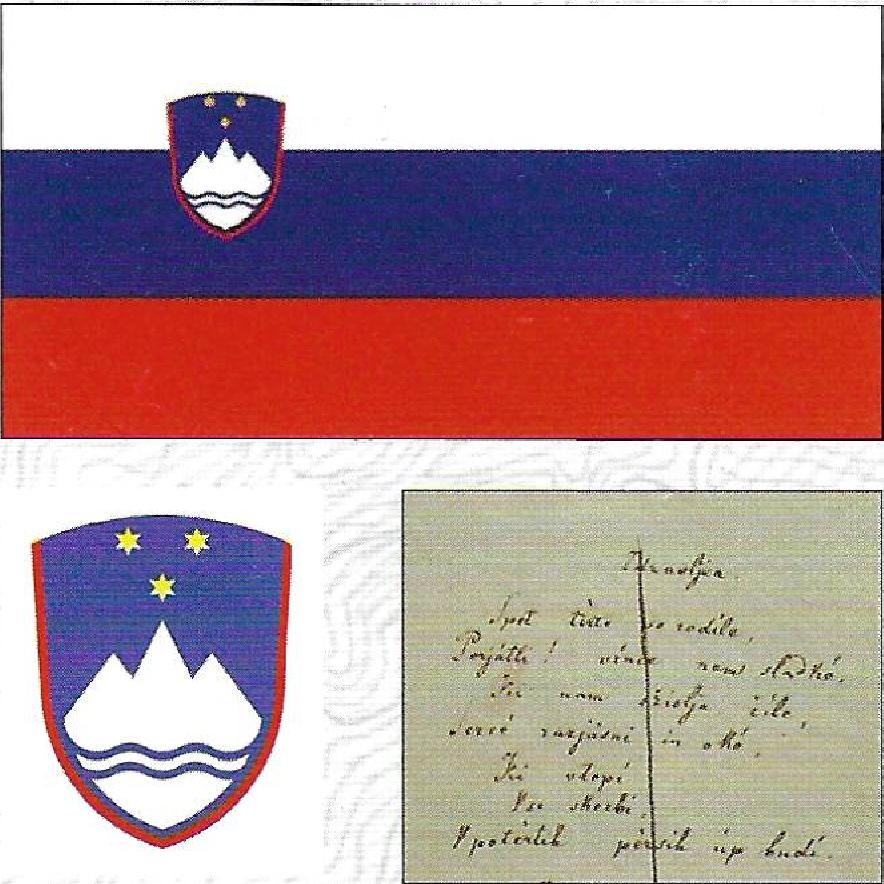 Zdravljica.
Spet tèrte so rodile,
Perjátli! vince nam sladkó,
Ki nam oživlja žile,
Sercé razjásni in okó,
Ki utopí
Vse skerbí,
V potèrtih pèrsih úp budí.